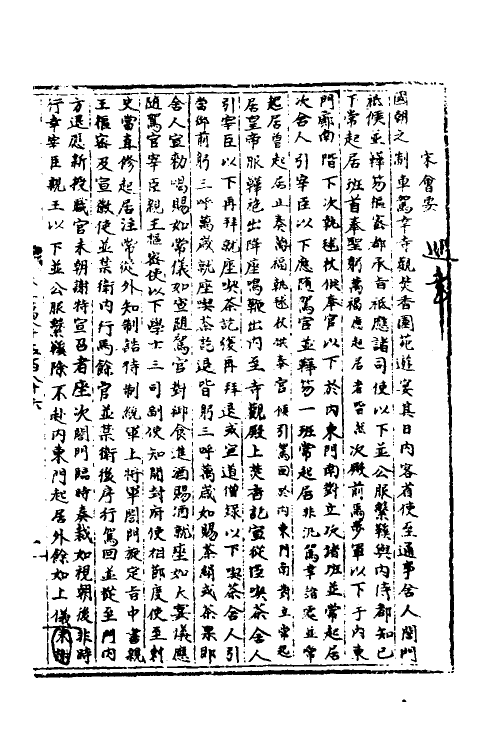 宋會要
巡幸
國朝之制車駕幸寺觀焚香園苑遊宴其日内客省使至通事舍人閤門
祗候並鞾笏樞密都承旨祗應諸司使以下並公服繫鞵與内侍都知已
下常起居班首奏聖躬萬福應起居者皆然次殿前馬步軍以下于内東
門廊南階下次執毬杖供奉官以下於内東門南對立次堵班並常起居
次舍人引宰臣以下應隨駕官並鞾笏一班常起居非汎駕幸詣宮並常
起居曾起居止奏萬福執毬杖供奉官候引駕回於内東門南對立常起
居皇帝服鞾袍出降座鳴鞭出内至寺觀殿上焚香記宣從臣喫茶舍人
引宰臣以下再拜就座喫茶訖復再拜退或宣道僧録以下喫茶舍人引
當御前躬三呼萬歲就座喫茶訖退皆躬三呼萬歲如賜茶絹或茶果即
舍人宣勅唱賜如常儀如宣隨駕官對御食進酒賜酒就座如大宴儀應
隨駕官宰臣親王樞密使以下學士三司副使知開封府使相節度使至刺
史當直修起居注常從外知制誥待制統軍上將軍閤門旋定告中書親
王樞密及宣徽使並某衙内行馬餘官並某衙後序行駕回並從至門内
方退應新授職官未朝謝特宣召者座次閤門臨時奏裁如視朝後非時
行幸宰臣親王以下並公服繫鞵除不赴内東門起居外餘如上儀